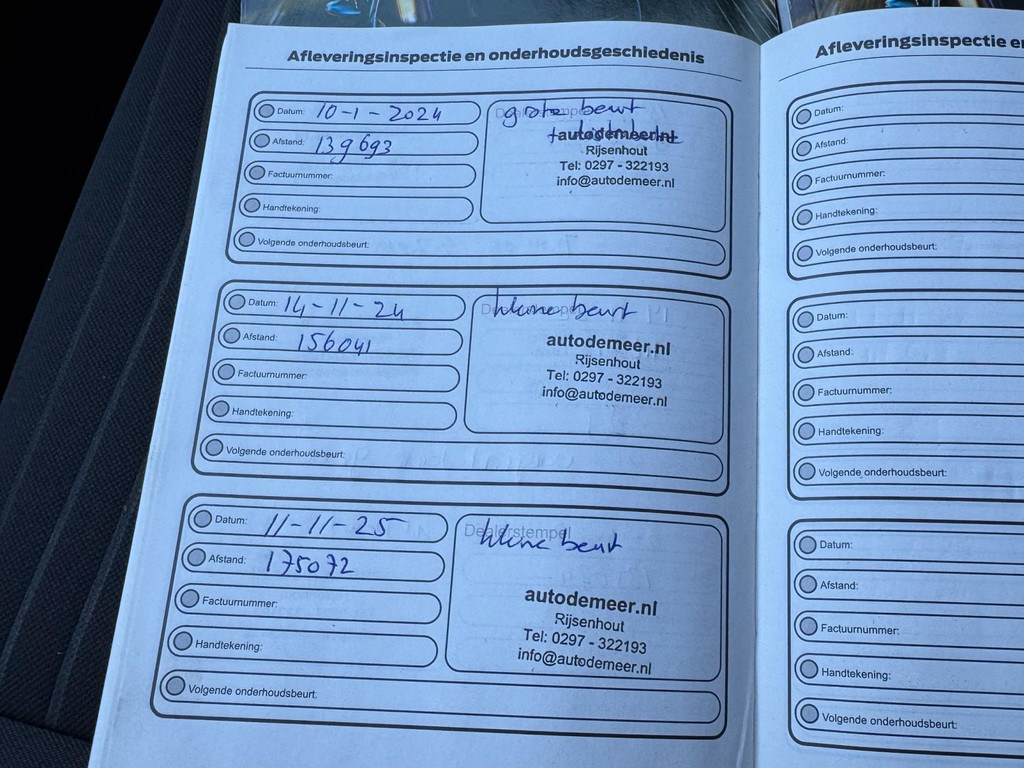 Afleveringsinspectie en onderhoudsgeschiedenis
Datum: 10-1-2024
Afstand: 139693
Factuurnummer:
Handtekening:
Volgende onderhoudsbeurt:
grote beurt
autodemeer.nl
Rijsenhout
Tel: 0297 - 322193
info@autodemeer.nl
Datum: 14-11-24
Afstand: 156041
Factuurnummer:
Handtekening:
Volgende onderhoudsbeurt:
kleine beurt
autodemeer.nl
Rijsenhout
Tel: 0297 - 322193
info@autodemeer.nl
Datum: 11-11-25
Afstand: 175072
Factuurnummer:
Handtekening:
Volgende onderhoudsbeurt:
Dealerstempel
kleine beurt
autodemeer.nl
Rijsenhout
Tel: 0297 - 322193
info@autodemeer.nl
Afleveringsinspectie
Datum:
Afstand:
Factuurnummer:
Handtekening:
Volgende onderhoudsbeurt:
Datum:
Afstand:
Factuurnummer:
Handtekening:
Volgende onderhoudsbeurt:
Datum:
Afstand:
Factuurnummer:
Handtekening:
Volgende onderhoudsbeurt: